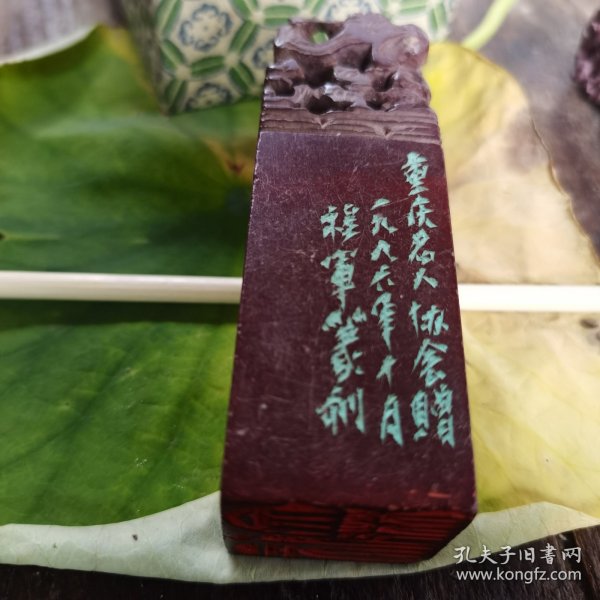 重庆名人协会赠
一九九六年十月
程军篆刻
孔夫子旧书网
www.kongfz.com